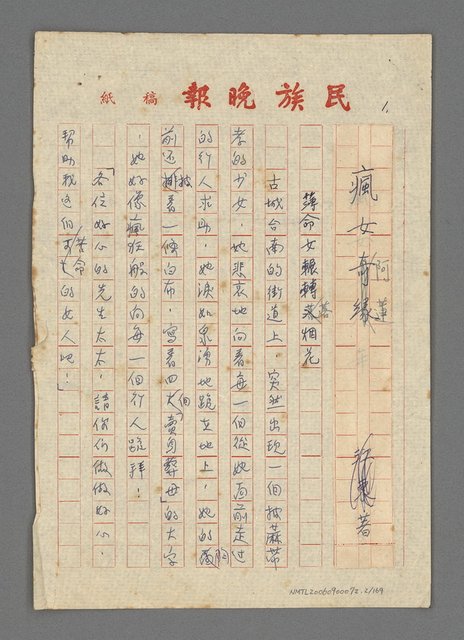 民族晚報 稿紙
1.
瘋女奇緣
阿蓮
著
薄命女輾轉落烟花
古城台南的街道上,突然出現一個披蔴帶
孝的少女,她悲哀地向着每一個從她面前走過
的行人求助,她淚如泉湧地跪在地上,她的胸
前还披着一條白布,寫着四個「賣身葬母」的大字
,她好像瘋狂般的向每一個行人跪拜!
「各位好心的先生太太,請你們做做好心,
幫助我这個苦命的女人吧!」
NMTL20060900092.2/169